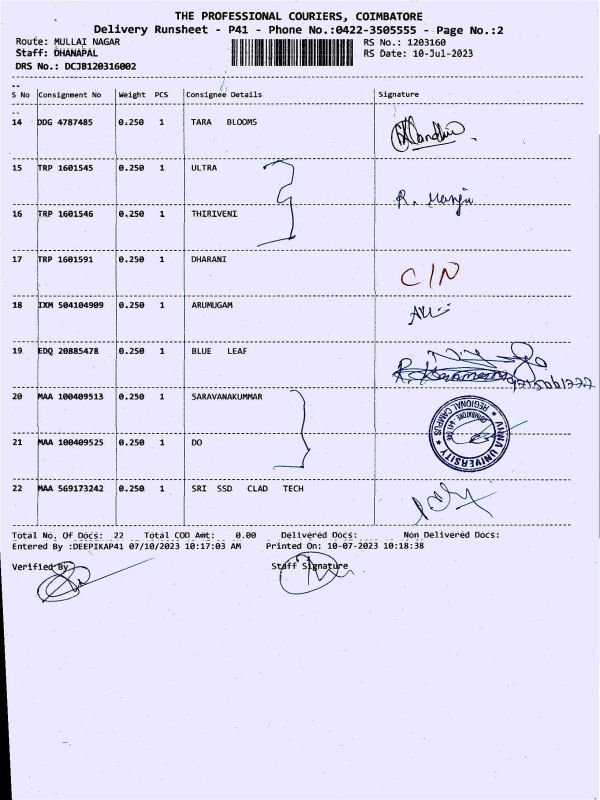 THE PROFESSIONAL COURIERS, COIMBATORE
Delivery Runsheet - P41 - Phone No.:0422-3505555 - Page No.:2
Route: MULLAI NAGAR RS No.: 1203160
Staff: DHANAPAL RS Date: 10-Jul-2023
DRS No.: DCJB120316002
S No Consignment No Weight PCS Consignee Details Signature
14 DDG 4787485 0.250 1 TARA BLOOMS
15 TRP 1601545 0.250 1 ULTRA
R. Manju
16 TRP 1601546 0.250 1 THIRIVENI
17 TRP 1601591 0.250 1 DHARANI
C/N
18 IXM 504104909 0.250 1 ARUMUGAM
19 EDQ 20885478 0.250 1 BLUE LEAF
20 MAA 100409513 0.250 1 SARAVANAKUMMAR
REGIONAL CAMPUS
UNIVERSITY
21 MAA 100409525 0.250 1 DO
22 MAA 569173242 0.250 1 SRI SSD CLAD TECH
Total No. Of Docs: 22 Total COD Amt: 0.00 Delivered Docs: Non Delivered Docs:
Entered By :DEEPIKAP41 07/10/2023 10:17:03 AM Printed On: 10-07-2023 10:18:38
Verified By Staff Signature